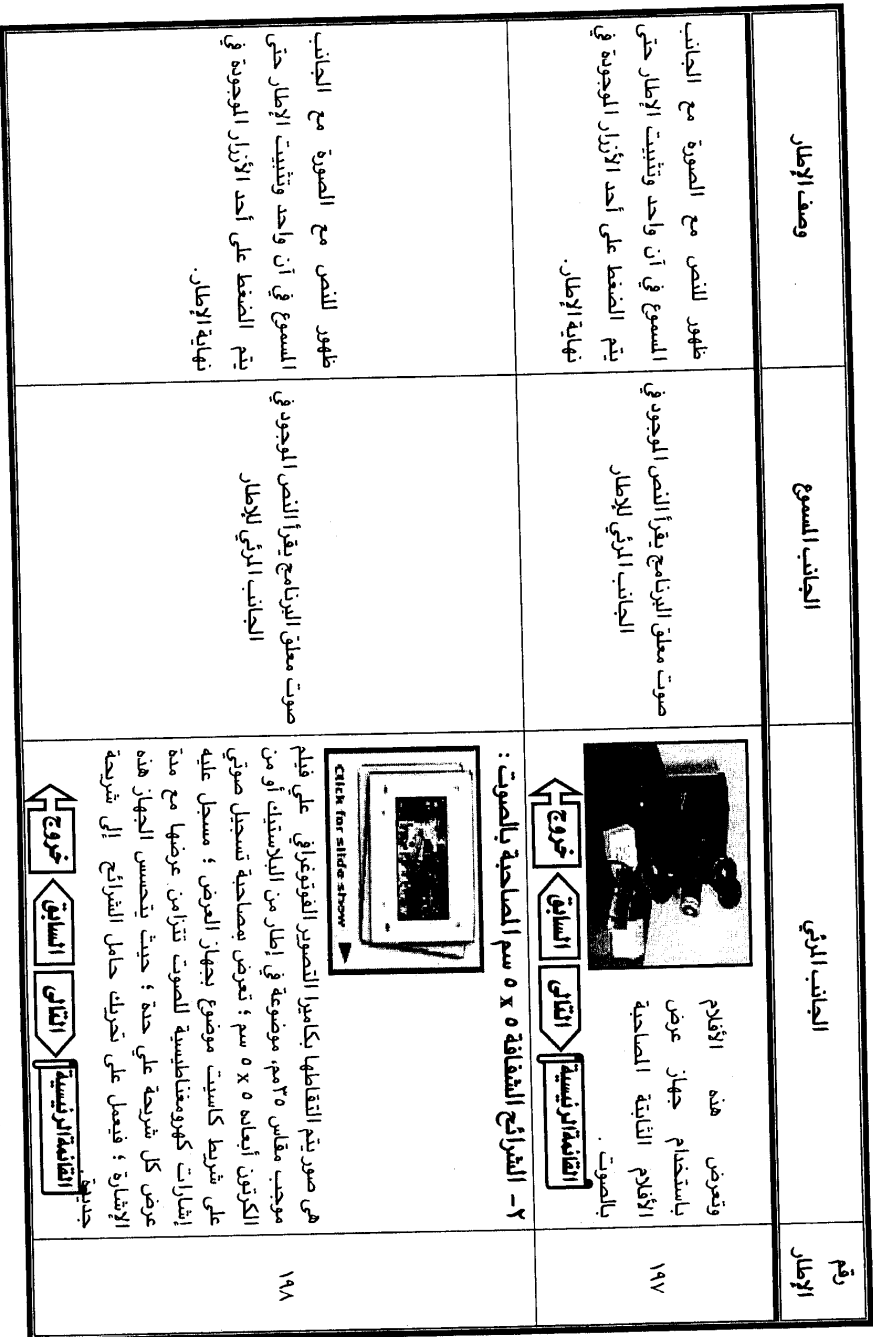 رقم
الإطار
الجانب المرئي
الجانب المسموع
وصف الإطار
١٩٧
وتعرض هذه الأفلام
باستخدام جهاز عرض
الأفلام الثابتة المصاحبة
بالصوت.
خروج
السابق
التالى
القائمة الرئيسية
صوت معلق البرنامج يقرأ النص الموجود في
الجانب المرئي للإطار
ظهور للنص مع الصورة مع الجانب
المسموع في آن واحد وتثبيت الإطار حتى
يتم الضغط على أحد الأزرار الموجودة في
نهاية الإطار.
١٩٨
٢- الشرائح الشفافة ٥ x ٥ سم المصاحبة بالصوت :
Click for slide show
هى صور يتم التقاطها بكاميرا التصوير الفوتوغرافي علي فيلم
موجب مقاس ٣٥مم، موضوعة في إطار من البلاستيك أو من
الكرتون أبعاده ٥ x ٥ سم ؛ تعرض بمصاحبة تسجيل صوتي
على شريط كاسيت موضوع بجهاز العرض ؛ مسجل عليه
إشارات كهرومغناطيسية للصوت تتزامن عرضها مع مدة
عرض كل شريحة علي حدة ؛ حيث يتحسس الجهاز هذه
الإشارة ؛ فيعمل على تحريك حامل الشرائح إلى شريحة
جديدة.
خروج
السابق
التالى
القائمة الرئيسية
صوت معلق البرنامج يقرأ النص الموجود في
الجانب المرئي للإطار
ظهور للنص مع الصورة مع الجانب
المسموع في آن واحد وتثبيت الإطار حتى
يتم الضغط على أحد الأزرار الموجودة في
نهاية الإطار.